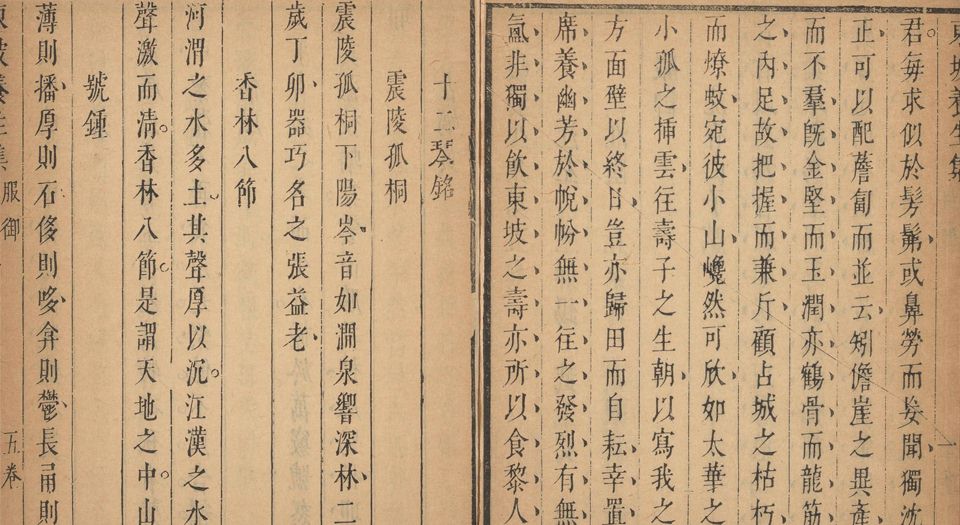 東坡養生集
君每求似於髣髴或鼻勞而妄聞獨沈
正可以配薝蔔而並云矧儋崖之異產
而不羣旣金堅而玉潤亦鶴骨而龍筋
之內足故把握而兼斤顧占城之枯朽
而燎蚊宛彼小山巉然可欣如太華之
小孤之揷雲往壽子之生朝以寫我之
方面壁以終日豈亦歸田而自耘幸置
席養幽芳於帨帉無一往之發烈有無
氣非獨以飮東坡之壽亦所以食黎人
十二琴銘
震陵孤桐
震陵孤桐下陽岑音如澗泉響深林二
歲丁卯器巧名之張益老
香林八節
河渭之水多土其聲厚以沉江漢之水
聲激而淸香林八節是謂天地之中山
號鍾
薄則播厚則石侈則哆弇則鬱長甬則
東坡養生集 服御 五卷